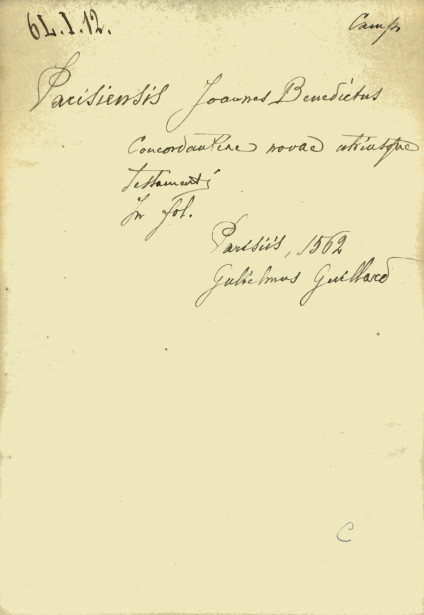 6L.I.12.
Camp
Parisiensis Joannes Benedictus
Concordantiae novae utriusque
testamenti
In fol.
Parisiis, 1562
Gulielmus Guillard
C